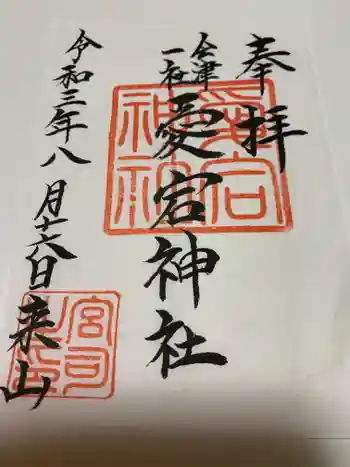 奉拝
会津
一社
愛宕神社
令和三年八月十六日来山
愛宕
神社
宮司